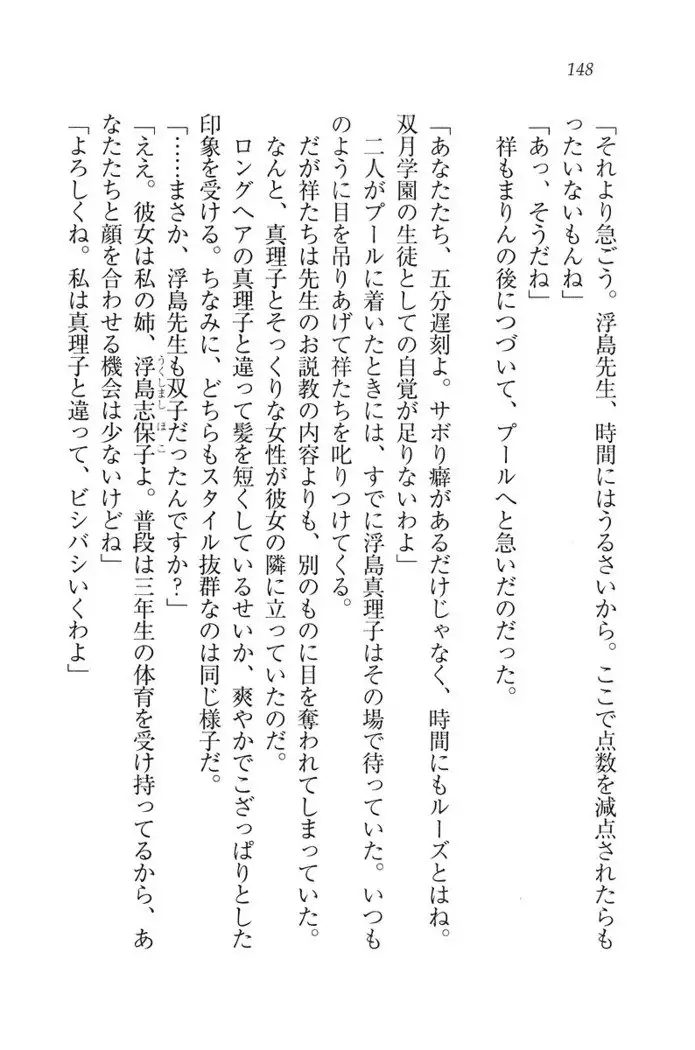 148
「それより急ごう。浮島先生、時間にはうるさいから。ここで点数を減点されたらも
ったいないもんね」
「あっ、そうだね」
祥もまりんの後につづいて、プールへと急いだのだった。
「あなたたち、五分遅刻よ。サボり癖があるだけじゃなく、時間にもルーズとはね。
双月学園の生徒としての自覚が足りないわよ」
二人がプールに着いたときには、すでに浮島真理子はその場で待っていた。いつも
のように目を吊りあげて祥たちを叱りつけてくる。
だが祥たちは先生のお説教の内容よりも、別のものに目を奪われてしまっていた。
なんと、真理子とそっくりな女性が彼女の隣に立っていたのだ。
ロングヘアの真理子と違って髪を短くしているせいか、爽やかでこざっぱりとした
印象を受ける。ちなみに、どちらもスタイル抜群なのは同じ様子だ。
「……まさか、浮島先生も双子だったんですか？」
「ええ。彼女は私の姉、浮島志保子よ。普段は三年生の体育を受け持ってるから、あ
うくしまし ほこ
なたたちと顔を合わせる機会は少ないけどね」
「よろしくね。私は真理子と違って、ビシバシいくわよ」